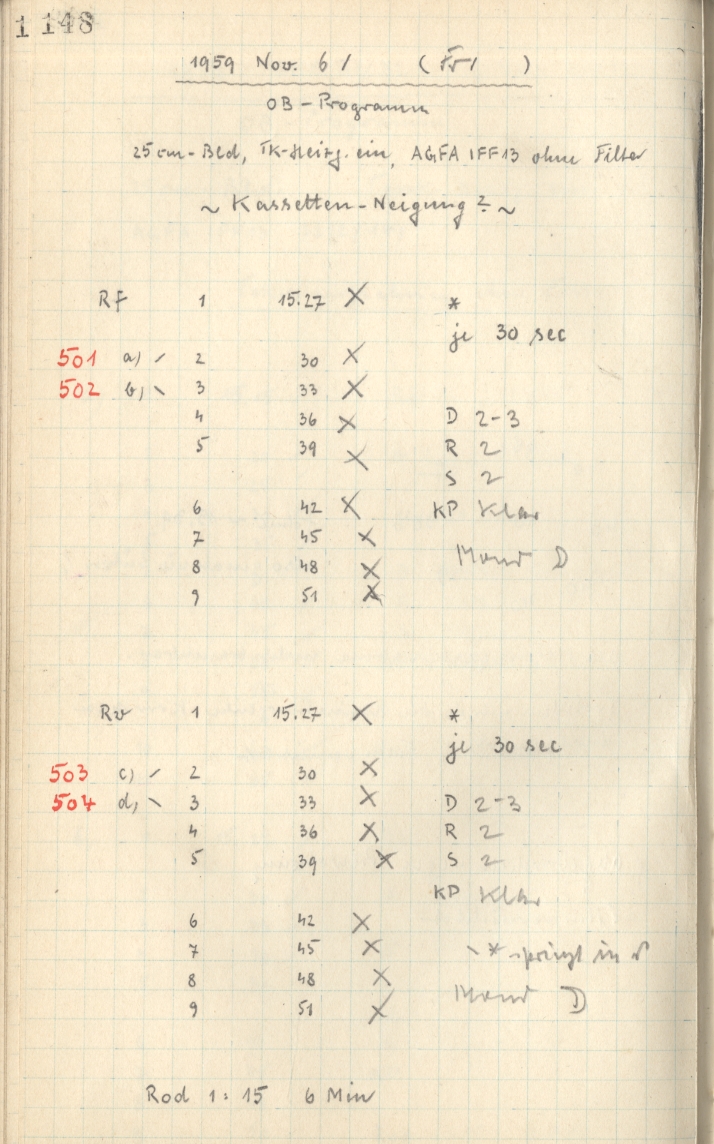 1 148
1959 Nov. 6 / (Fr / )
OB-Programm
25 cm-Bld, TK-Heizg. ein, AGFA IFF13 ohne Filter
~ Kassetten-Neigung ? ~
Rf 1 15.27 X *
je 30 sec
501 a) / 2 30 X
502 b) \ 3 33 X
4 36 X D 2-3
5 39 X R 2
S 2
6 42 X KP Klar
7 45 X
8 48 X Mond D
9 51 X
Rv 1 15.27 X *
je 30 sec
503 c) / 2 30 X
504 d) \ 3 33 X D 2-3
4 36 X R 2
5 39 X S 2
KP Klar
6 42 X
7 45 X \ * springt in
8 48 X Mond D
9 51 X
Rod 1:15 6 Min